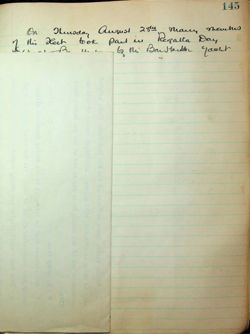 145
On Thursday August 28th Many Members
of the Fleet took part in Regatta Day
by the Yacht